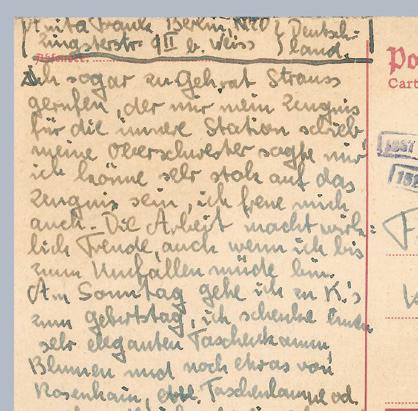 Anita Franke, Berlin, N20 { Deutsch-
zingsterstr. 9 II b. Weiss } land.
Absender:
Ich sogar zu Gehrat Strauss
gerufen, der mir mein Zeugnis
für die innere Station schrieb
meine Oberschwester sagte mir
ich könne sehr stolz auf das
Zeugnis sein, ich freue mich
auch. Die Arbeit macht wirk-
lich Freude, auch wenn ich bis
zum Umfallen müde bin.
Am Sonntag gehe ich zu K.'s
zum Geburtstag, ich schenke
sehr eleganten Taschenkamm,
Blumen und noch etwas von
Rosenhain, Taschenlampe od.
Po
Cart